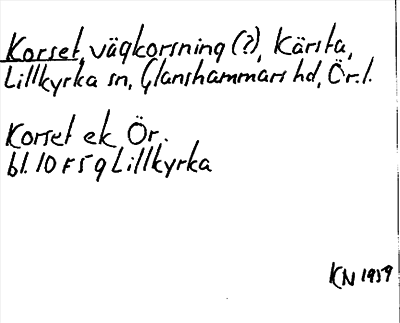 Korset, vägkorsning (?), Kärsta,
Lillkyrka sn, Glanshammars hd, Ör. l.
Korset ek Ör.
bl. 10 F 5 g Lillkyrka
KN 1959